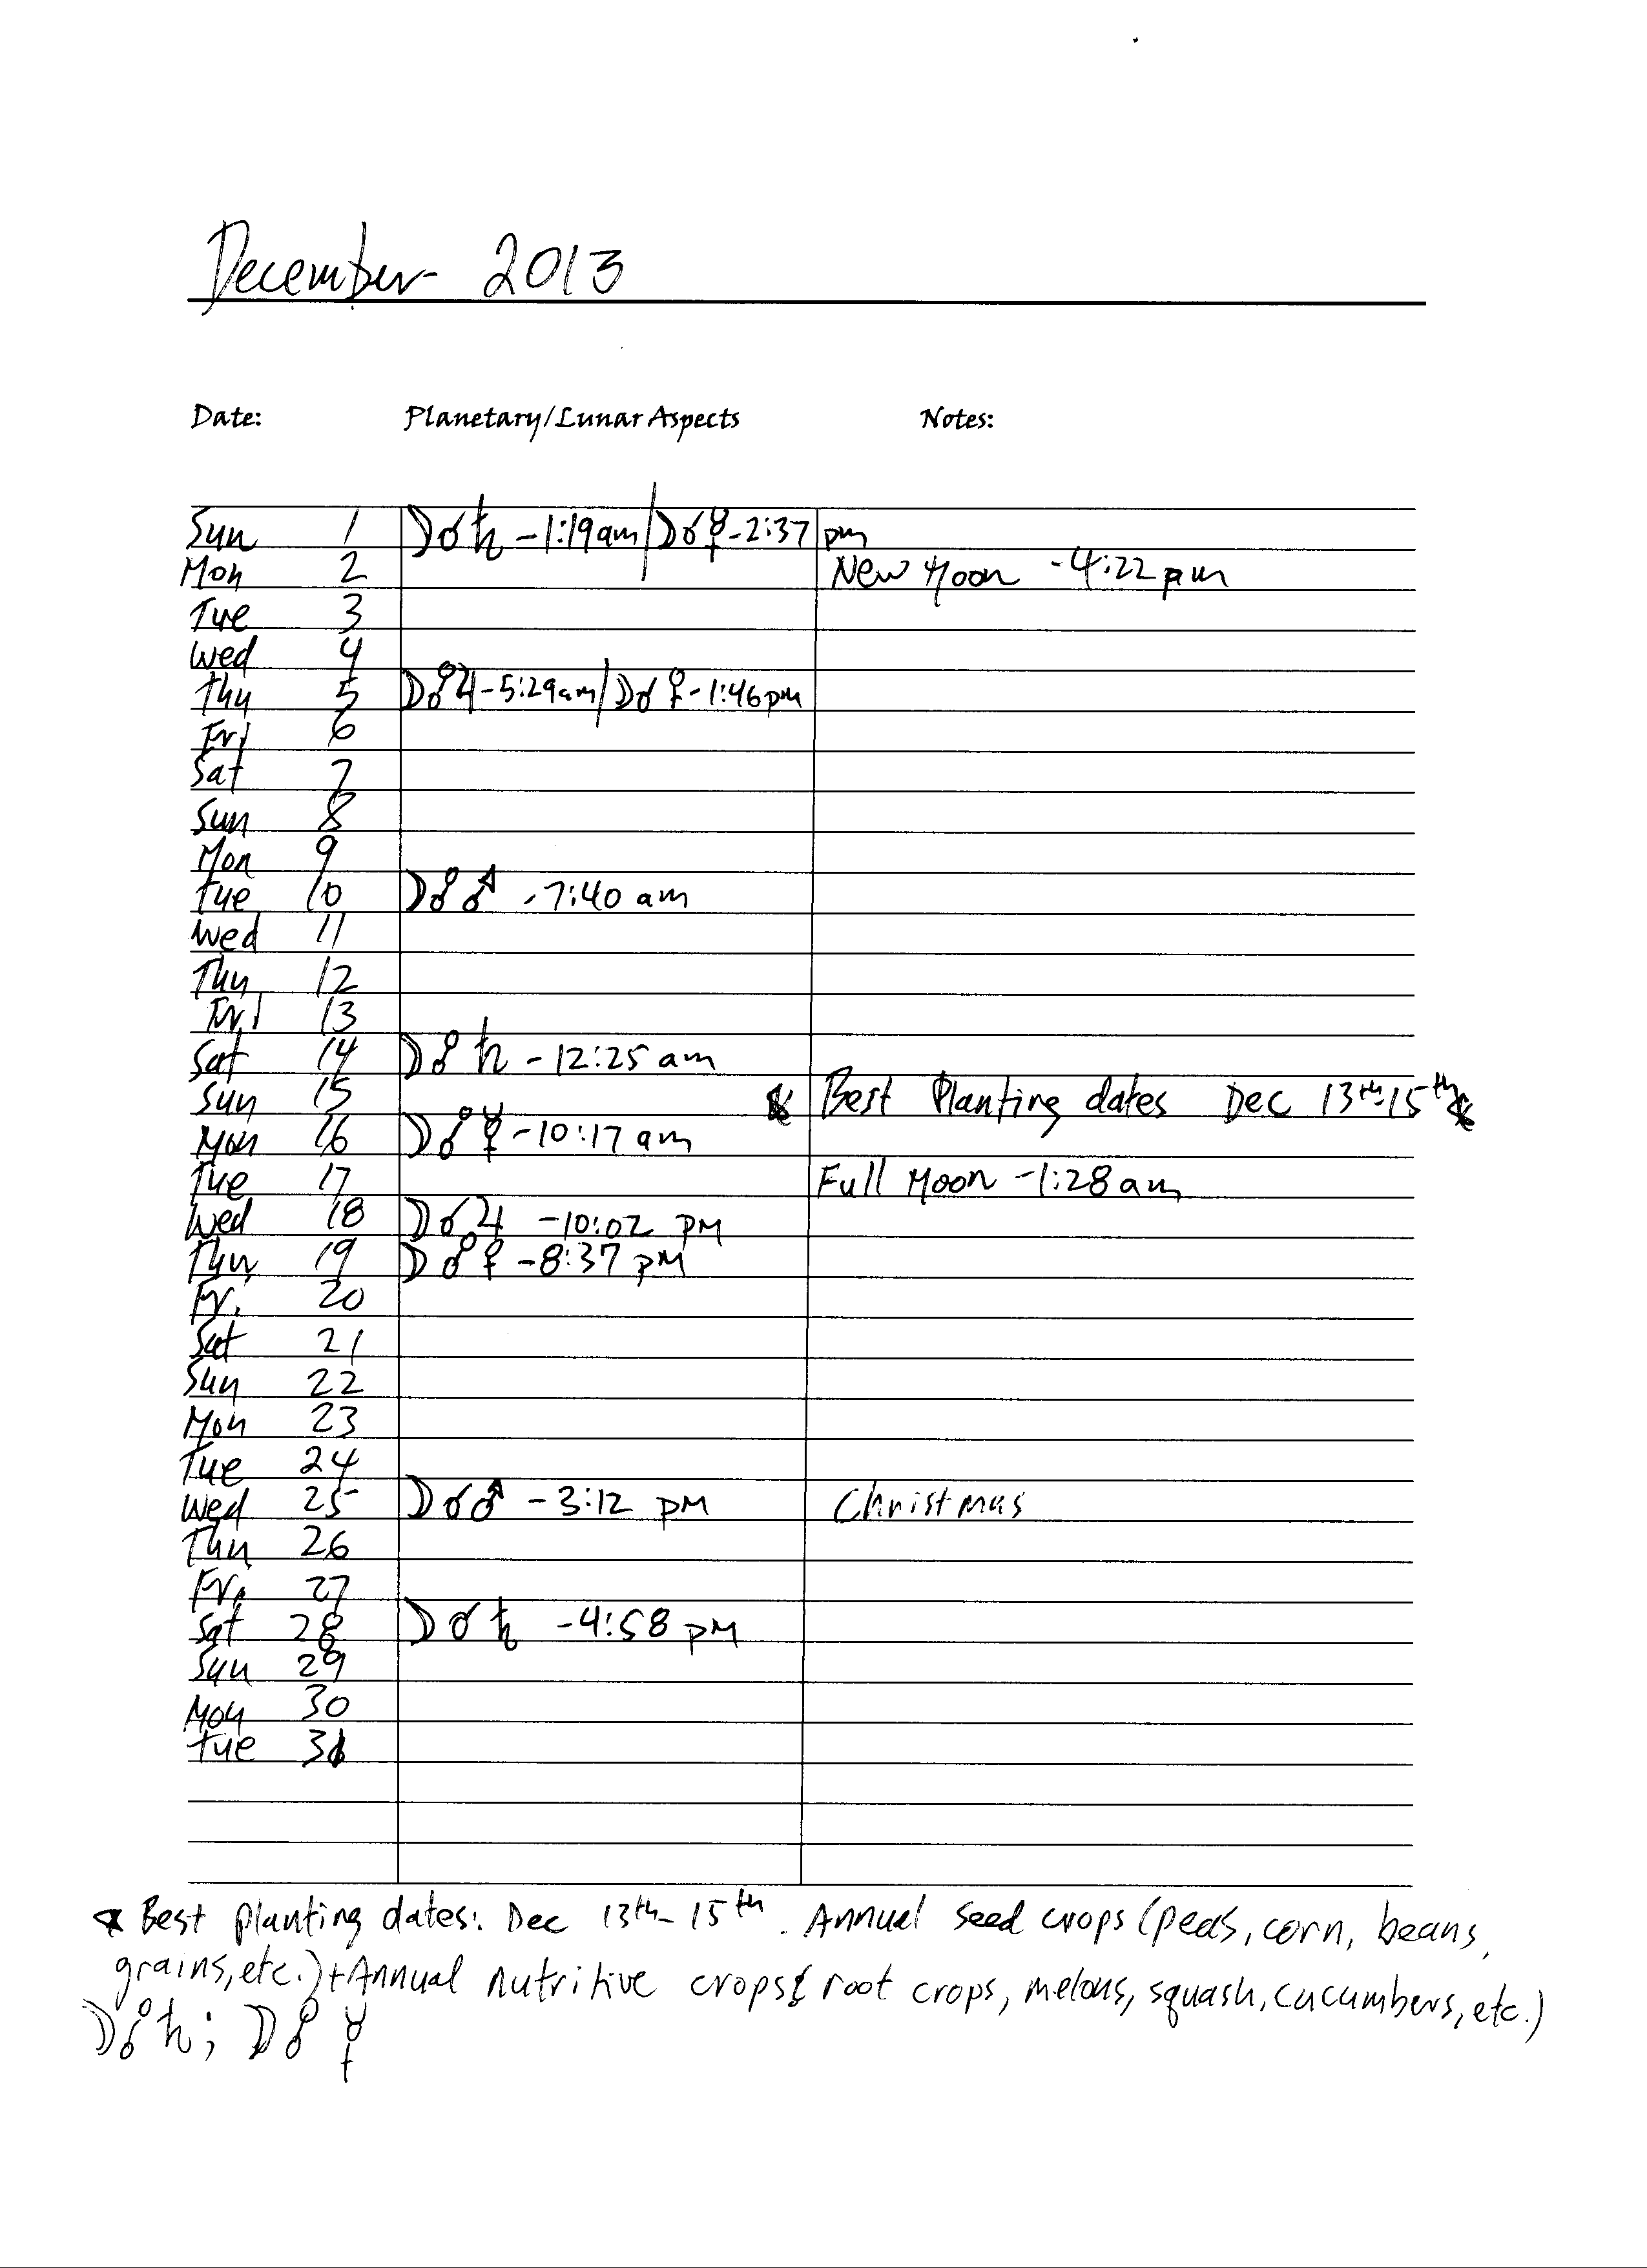 December 2013
Date: Planetary/Lunar Aspects Notes:
Sun 1 ☽☌♄ -1:19am/☽☌☿-2:37 pm
Mon 2 New Moon -4:22 pm
Tue 3
Wed 4
Thu 5 ☽☍♃-5:29am/☽☌♀-1:46pm
Fri 6
Sat 7
Sun 8
Mon 9
Tue 10 ☽☍♂ -7:40 am
Wed 11
Thu 12
Fri 13
Sat 14 ☽☍♄ -12:25 am
Sun 15 * Best Planting dates Dec 13th-15th *
Mon 16 ☽☍☿ -10:17 am
Tue 17 Full Moon -1:28 am
Wed 18 ☽☌♃ -10:02 PM
Thu 19 ☽☍♀ -8:37 PM
Fri 20
Sat 21
Sun 22
Mon 23
Tue 24
Wed 25 ☽☌♂ -3:12 PM Christmas
Thu 26
Fri 27
Sat 28 ☽☌♄ -4:58 PM
Sun 29
Mon 30
Tue 31
* Best planting dates: Dec 13th-15th. Annual seed crops (peas, corn, beans,
grains, etc.) + Annual nutritive crops( root crops, melons, squash, cucumbers, etc.)
☽☍♄; ☽☍☿